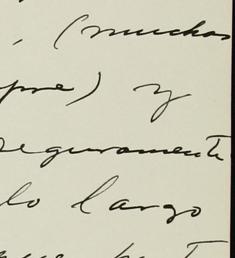 , (muchos
pre) y
seguramente
lo largo